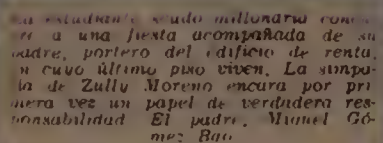 estudiante seudo millonaria
a una fiesta acompañada de su
padre, portero del edificio de renta,
n cuyo último piso viven. La simpa-
ía de Zully Moreno encara por pri
mera vez un papel de verdadera res-
ponsabilidad El padre, Miguel Gó-
mez Bao